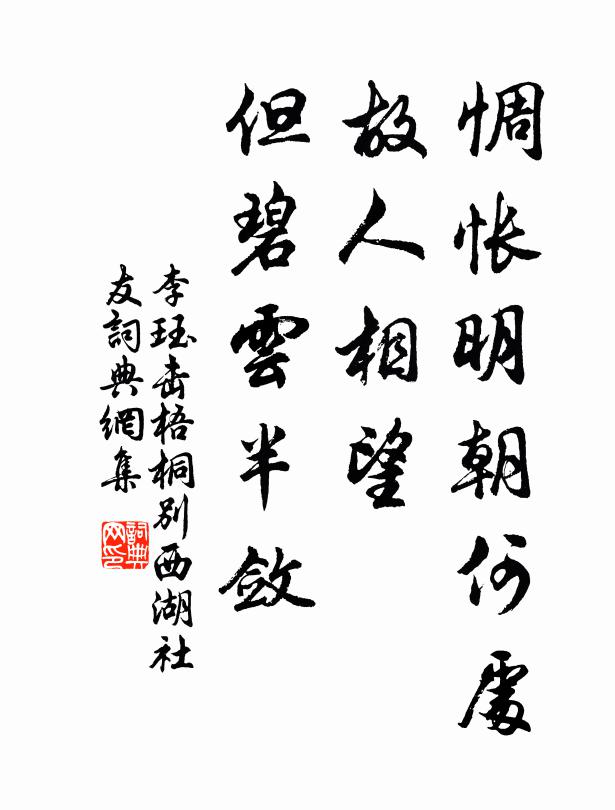 惆悵明朝何處
故人相望
但碧雲半斂
李珏击梧桐别西湖社
友詞典網集
詞典网印